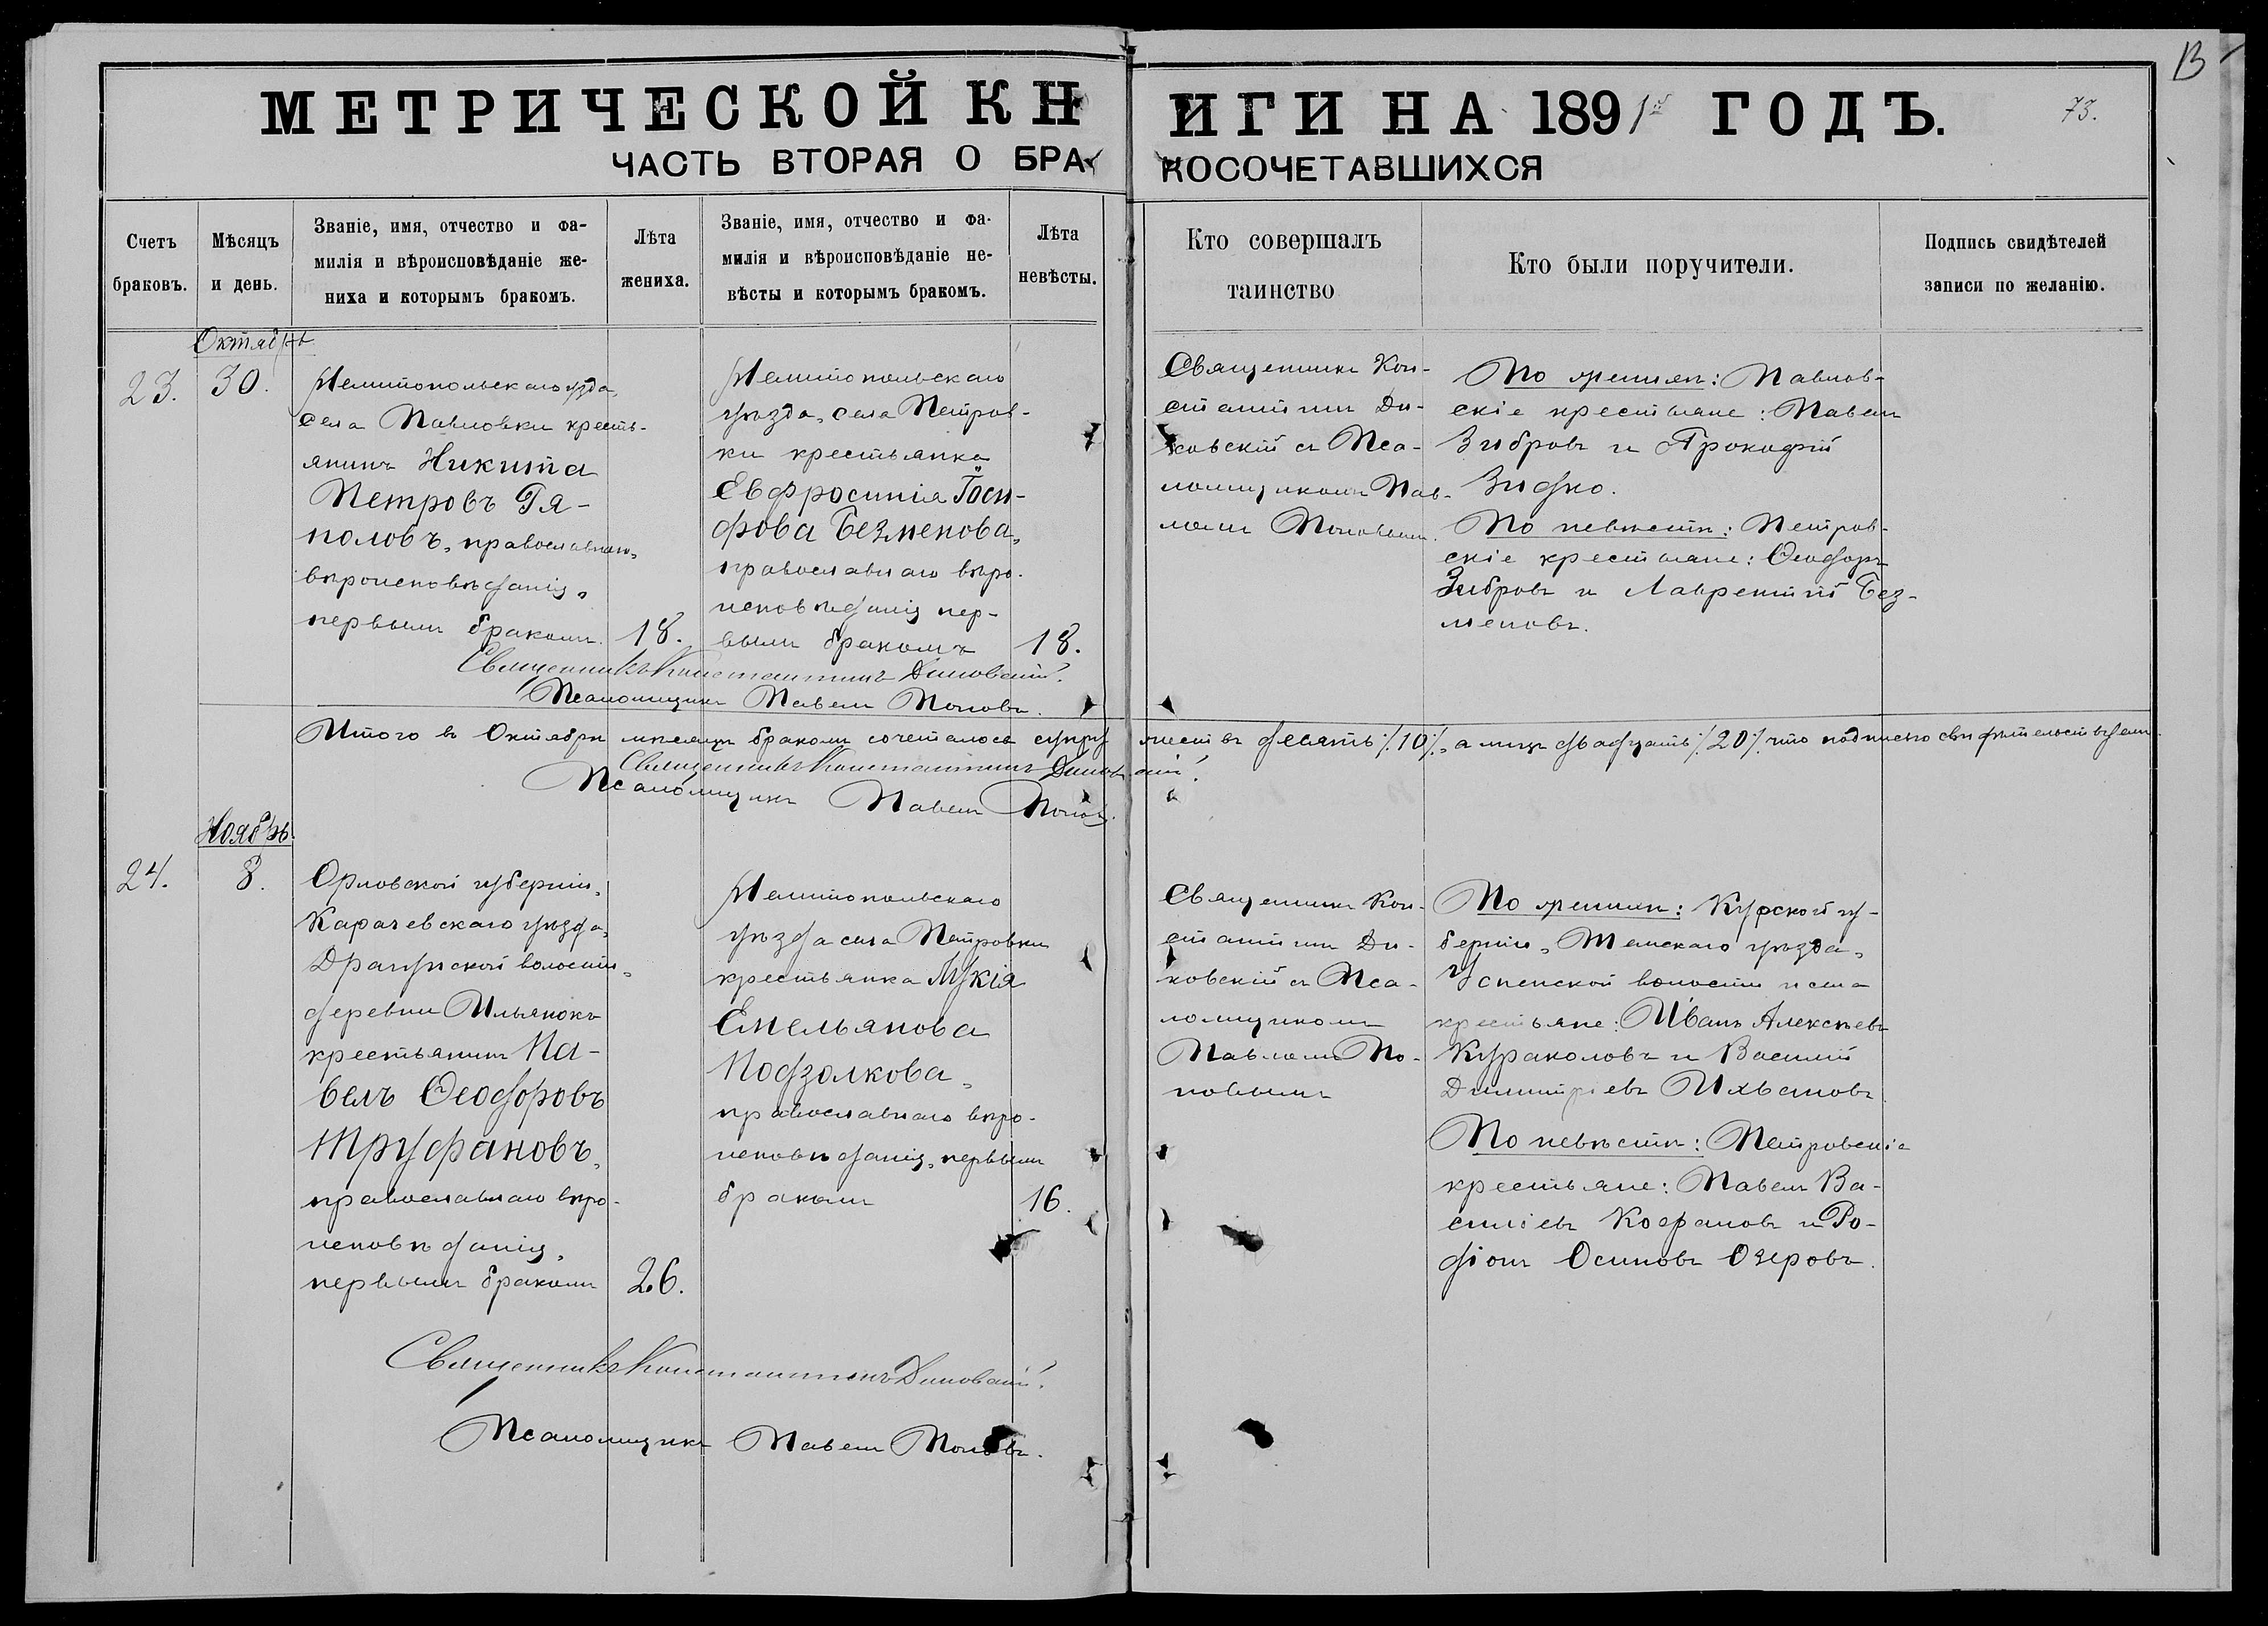 В
МЕТРИЧЕСКОЙ КНИГИ НА 1891й ГОДЪ.
73.
ЧАСТЬ ВТОРАЯ О БРАКОСОЧЕТАВШИХСЯ
Счетъ
браковъ.
Мѣсяцъ
и день.
Званіе, имя, отчество и фа-
милія и вѣроисповѣданіе же-
ниха и которымъ бракомъ.
Лѣта
жениха.
Званіе, имя, отчество и фа-
милія и вѣроисповѣданіе не-
вѣсты и которымъ бракомъ.
Лѣта
невѣсты.
Кто совершалъ
таинство
Кто были поручители.
Подпись свидѣтелей
записи по желанію.
Октябрь
23.
30.
Мелитопольскаго уѣзда,
села Павловки кресть-
янинъ Никита
Петровъ Гя-
половъ, православнаго
вѣроисповѣданія,
первымъ бракомъ.
18.
Мелитопольскаго
уѣзда, села Петров-
ки крестьянка
Евфросинія Іоси-
фова Безменова,
православнаго вѣро-
исповѣданія пер-
вымъ бракомъ
18.
Священникъ Кон-
стантинъ Ди-
ковскій съ Пса-
ломщикомъ Пав-
ломъ Поповымъ.
По женихѣ: Павлов-
скіе крестьяне: Павелъ
Зибровъ и Прокофій
Зидко.
По невѣстѣ: Петров-
скіе крестьяне: Ѳеодоръ
Зибровъ и Лаврентій Без-
меновъ.
Священникъ Константинъ Диковскій.
Псаломщикъ Павелъ Поповъ.
Итого въ Октябрѣ мѣсяцѣ бракомъ сочеталось супружествъ девять ·/.10·/., а лицъ двадцать ·/.20·/. что подписью свидѣтельствуемъ.
Священникъ Константинъ Диковскій.
Псаломщикъ Павелъ Поповъ.
Ноябрь.
24.
8.
Орловской губерніи,
Карачевскаго уѣзда,
Драгунской волости,
деревни Ильянокъ
крестьянинъ Па-
велъ Ѳеодоровъ
Труфановъ,
православнаго вѣро-
исповѣданія,
первымъ бракомъ
26.
Мелитопольскаго
уѣзда села Петровки
крестьянка Лукія
Емельянова
Подзолкова,
православнаго вѣро-
исповѣданія, первымъ
бракомъ
16.
Священникъ Кон-
стантинъ Ди-
ковскій съ Пса-
ломщикомъ
Павломъ По-
повымъ
По женихѣ: Курской гу-
берніи, Тимскаго уѣзда,
Успенской волости и села
крестьяне: Иванъ Алексѣевъ
Кураколовъ и Василій
Димитріевъ
По невѣстѣ: Петровскіе
крестьяне: Павелъ Ва-
силіевъ Кофановъ и Ро-
діонъ Осиповъ Озеровъ.
Священникъ Константинъ Диковскій.
Псаломщикъ Павелъ Поповъ.